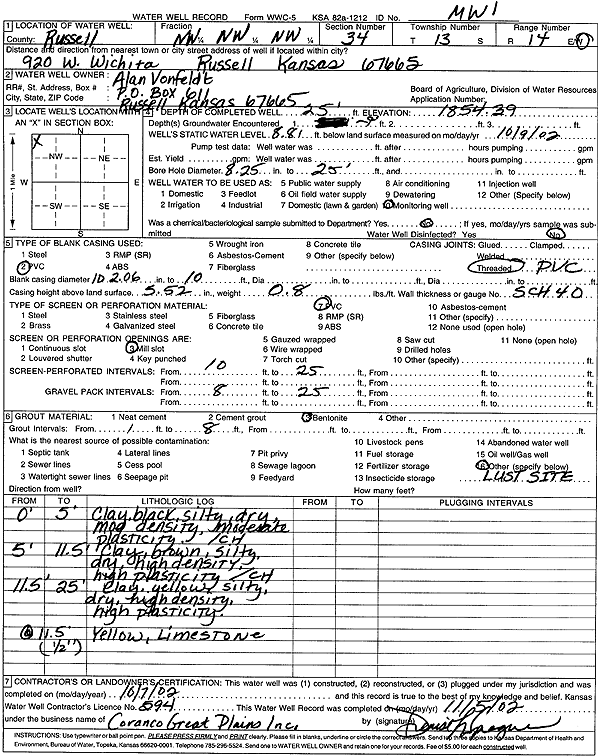 WATER WELL RECORD Form WWC-5 KSA 82a-1212 ID No. MW1
1 LOCATION OF WATER WELL: Fraction Section Number Township Number Range Number
County: Russell NW ¼ NW ¼ NW ¼ 34 T 13 S R 14 E/W
Distance and direction from nearest town or city street address of well if located within city?
920 W. Wichita Russell Kansas 67665
2 WATER WELL OWNER: Alan Vonfeldt
RR#, St. Address, Box # : P.O. Box 611 Board of Agriculture, Division of Water Resources
City, State, ZIP Code : Russell Kansas 67665 Application Number:
3 LOCATE WELL'S LOCATION WITH AN "X" IN SECTION BOX:
N
X
NW NE
W E
SW SE
S
1 Mile
4 DEPTH OF COMPLETED WELL 25' ft. ELEVATION: 1854.39
Depth(s) Groundwater Encountered 1. ft. 2. ft. 3. ft.
WELL'S STATIC WATER LEVEL 8.81 ft. below land surface measured on mo/day/yr 10/9/02
Pump test data: Well water was ft. after hours pumping gpm
Est. Yield gpm: Well water was ft. after hours pumping gpm
Bore Hole Diameter 8.25 in. to 25' ft., and in. to ft.
WELL WATER TO BE USED AS: 5 Public water supply 8 Air conditioning 11 Injection well
1 Domestic 3 Feedlot 6 Oil field water supply 9 Dewatering 12 Other (Specify below)
2 Irrigation 4 Industrial 7 Domestic (lawn & garden) 10 Monitoring well
Was a chemical/bacteriological sample submitted to Department? Yes No ; If yes, mo/day/yrs sample was submitted Water Well Disinfected? Yes No
5 TYPE OF BLANK CASING USED: 5 Wrought iron 8 Concrete tile CASING JOINTS: Glued Clamped
1 Steel 3 RMP (SR) 6 Asbestos-Cement 9 Other (specify below) Welded
2 PVC 4 ABS 7 Fiberglass Threaded PVC
Blank casing diameter ID 2.06 in. to 10 ft., Dia in. to ft., Dia in. to ft.
Casing height above land surface 5.52 in., weight 0.8 lbs./ft. Wall thickness or gauge No. SCH 40
TYPE OF SCREEN OR PERFORATION MATERIAL: 7 PVC 10 Asbestos-cement
1 Steel 3 Stainless steel 5 Fiberglass 8 RMP (SR) 11 Other (specify)
2 Brass 4 Galvanized steel 6 Concrete tile 9 ABS 12 None used (open hole)
SCREEN OR PERFORATION OPENINGS ARE: 5 Gauzed wrapped 8 Saw cut 11 None (open hole)
1 Continuous slot 3 Mill slot 6 Wire wrapped 9 Drilled holes
2 Louvered shutter 4 Key punched 7 Torch cut 10 Other (specify) ft.
SCREEN-PERFORATED INTERVALS: From 10 ft. to 25 ft., From ft. to ft.
From ft. to ft., From ft. to ft.
GRAVEL PACK INTERVALS: From 8 ft. to 25 ft., From ft. to ft.
From ft. to ft., From ft. to ft.
6 GROUT MATERIAL: 1 Neat cement 2 Cement grout 3 Bentonite 4 Other
Grout Intervals: From 1 ft. to 8 ft., From ft. to ft., From ft. to ft.
What is the nearest source of possible contamination: 10 Livestock pens 14 Abandoned water well
1 Septic tank 4 Lateral lines 7 Pit privy 11 Fuel storage 15 Oil well/Gas well
2 Sewer lines 5 Cess pool 8 Sewage lagoon 12 Fertilizer storage 16 Other (specify below)
3 Watertight sewer lines 6 Seepage pit 9 Feedyard 13 Insecticide storage LUST SITE
Direction from well? How many feet?
FROM TO LITHOLOGIC LOG FROM TO PLUGGING INTERVALS
0' 5' Clay, black, silty, dry,
mod density, moderate
plasticity /CH
5' 11.5' Clay, brown, silty,
dry, high density,
high plasticity /CH
11.5' 25' Clay, yellow, silty,
dry, high density,
high plasticity.
@ 11.5' Yellow, Limestone
(1/2")
7 CONTRACTOR'S OR LANDOWNER'S CERTIFICATION: This water well was (1) constructed, (2) reconstructed, or (3) plugged under my jurisdiction and was
completed on (mo/day/year) 10/7/02 and this record is true to the best of my knowledge and belief. Kansas
Water Well Contractor's Licence No. 594 This Water Well Record was completed on (mo/day/yr)
under the business name of Coranco Great Plains Inc. by (signature)
INSTRUCTIONS: Use typewriter or ball point pen. PLEASE PRESS FIRMLY and PRINT clearly. Please fill in blanks, underline or circle the correct answers. Send top three copies to Kansas Department of Health and
Environment, Bureau of Water, Topeka, Kansas 66620-0001. Telephone 785-296-5524. Send one to WATER WELL OWNER and retain one for your records. Fee of $5.00 for each constructed well.